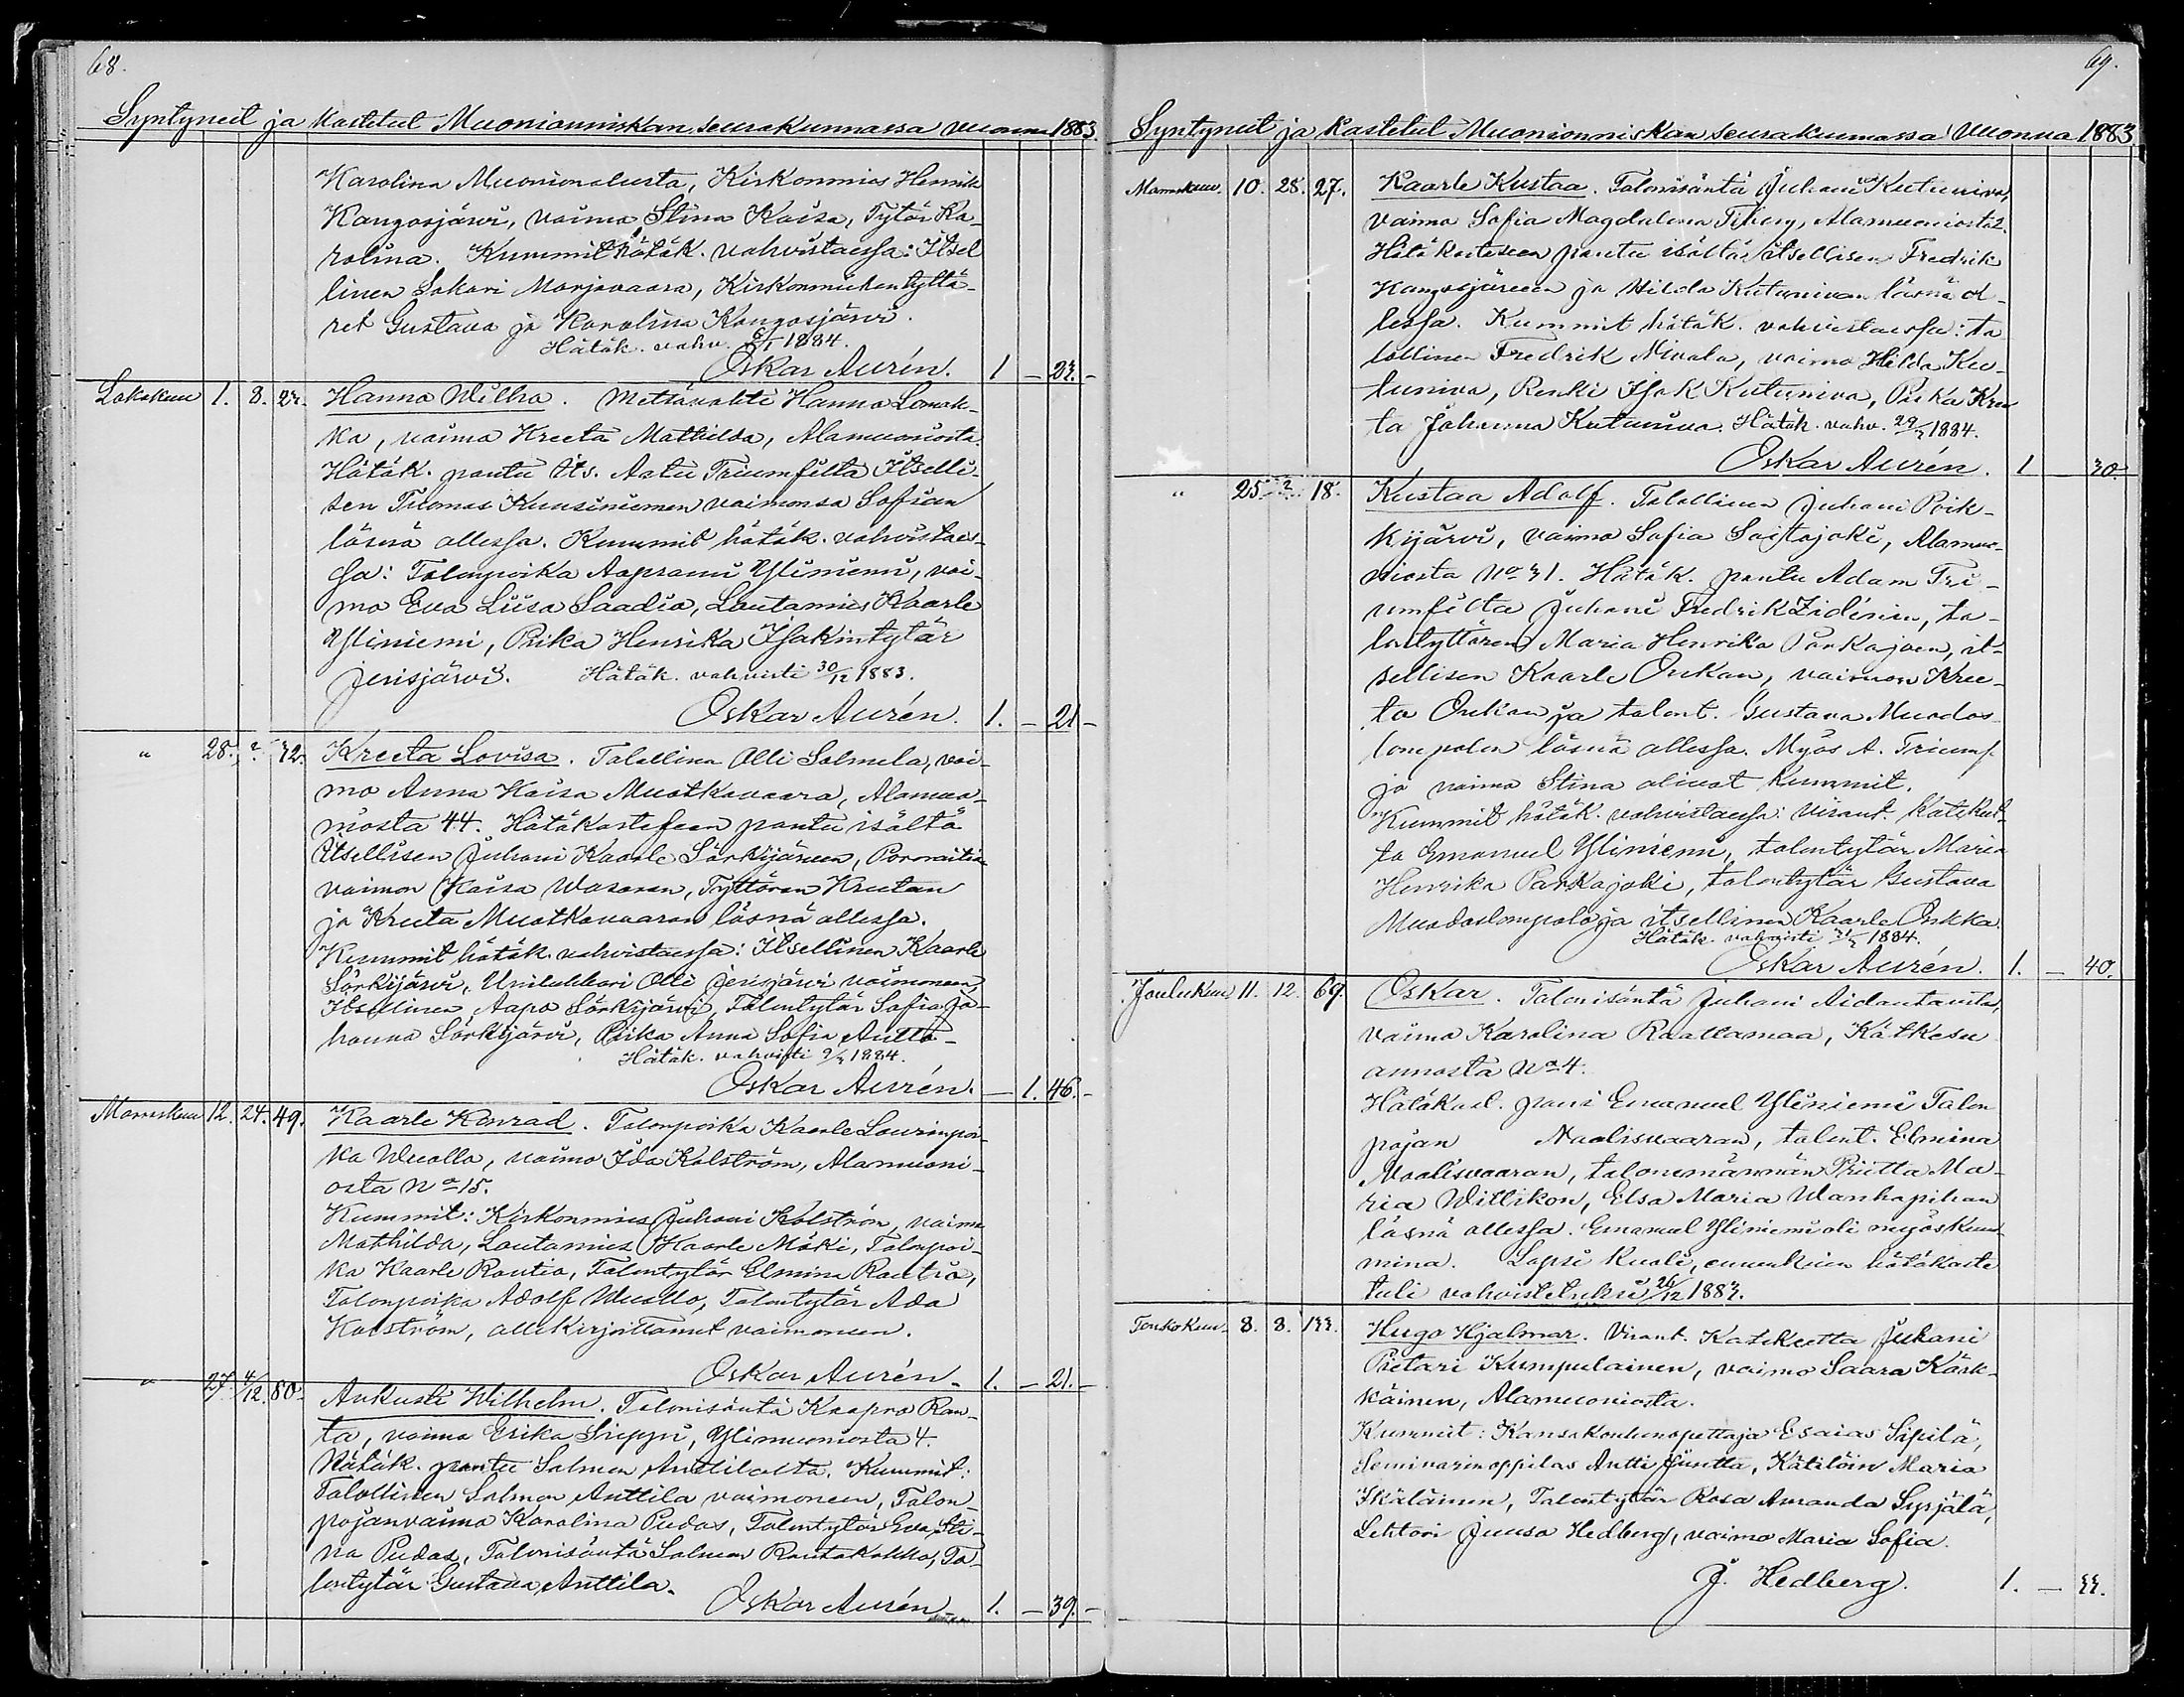 68.
Syntyneet ja Kastetut Muonionniskan seurakunnassa vuonna 1883.
Karolina Muonionalusta, Kirkonmies Henrik
Kangosjärvi, vaimo Stina Kaisa, Tytär Ka-
rolina. Kummit hätäk. vahvistaessa: Itsel
linen Sakari Marjavaara, Kirkonmiehen tyttä-
ret Gustava ja Karolina Kangosjärvi.
Hätäk. vahv. 6/1 1884.
Oskar Aurén. 1 - 23. -
Lokakuu 1. 8. 23. Hanna Wilha. Mettävahti Hannu Lomak-
ka, vaimo Kreeta Mathilda, Alamuoniosta.
Hätäk. pantu Its. Aatu Triumfilta Itselli-
sen Tuomas Kuusiniemen vaimonsa Sofian
läsnä ollessa. Kummit hätäk. vahvistaes-
sa: Talonpoika Aaprami Yliniemi, vai-
mo Eva Liisa Saadio, Lautamies Kaarle
Yliniemi, Piika Henrika Isakintytär
Jerisjärvi. Hätäk. vahvisti 30/12 1883.
Oskar Aurén. 1. - 21 -
" 28. 2. 42. Kreeta Lovisa. Talollinen Olli Salmela, vai-
mo Anna Kaisa Muotkavaara, Alamuo-
niosta 44. Hätäkasteseen pantu isältä
Itsellisen Juhani Kaarle Särkijärven,
vaimon Kaisa Wasaran, Tyttären Kreetan
ja Kreeta Muotkavaaran läsnä ollessa.
Kummit hätäk. vahvistaessa: Itsellinen Kaarle
Särkijärvi, Unilukkari Olli Jerisjärvi vaimoneen,
Itsellinen Aapo Särkijärvi, Talontytär Sofia Jo-
hanna Särkijärvi, Piika Anna Sofia Autto-
Hätäk. vahvisti 1884.
Oskar Aurén. - 1. 46. -
Marraskuu 12. 24. 49. Kaarle Konrad. Talonpoika Kaarle Laurinpoi-
ka Wuollo, vaimo Ida Kolström, Alamuoni-
osta No 15.
Kummit: Kirkonmies Juhani Kolström, vaimo
Mathilda, Lautamies Kaarle Mäki, Talonpoi-
ka Kaarle Rautio, Talontytär Elmina Rautio,
Talonpoika Adolf Wuollo, Talontytär Ada
Kolström, allekirjoittanut vaimoneen.
Oskar Aurén. 1. - 21. -
" 27. 4/12. 80. Aukusti Wilhelm. Talonisäntä Kaapro Ran-
ta, vaimo Erika Sieppi, Ylimuoniosta 4.
Hätäk. pantu Salmon Anttilalta. Kummit:
Talollinen Salmon Anttila vaimoneen, Talon-
pojanvaimo Karolina Pudas, Talontytär Eva Sti-
na Pudas, Talonisäntä Salmon Rautakokko, Ta-
lontytär Gustava Anttila.
Oskar Aurén 1. - 39. -
69.
Syntyneet ja Kastetut Muonionniskan seurakunnassa Vuonna 1883.
Marraskuu. 10. 28. 27. Kaarle Kustaa. Talonisäntä Juhani Kutuniva,
vaimo Sofia Magdalena Tiberg, Alamuoniosta 2.
Hätäkasteseen pantu isältä itsellisen Fredrik
Kangosjärven ja Hilda Kutunivan läsnä ol-
lessa. Kummit hätäk. vahvistaessa: ta
lollinen Fredrik Nivala, vaimo Hilda Ku-
tuniva, Renki Isak Kutuniva, Piika Kree
ta Johanna Kutuniva. Hätäk. vahv. 1884.
Oskar Aurén. 1 30.
" 25. 2. 18. Kustaa Adolf. Talollinen Juhani Poik-
kijärvi, vaimo Sofia Saitajoki, Alamuo-
niosta No 31. Hätäk. pantu Adam Tri-
umfilta Juhani Fredrik Zidénin, ta-
lontyttären Maria Henrika Parkajoen, it-
sellisen Kaarle Onkan, vaimon Kree-
ta Onkan ja talont. Gustava Muodos
lompolon läsnä ollessa. Myös A. Triumf
ja vaimo Stina olivat kummit.
Kummit hätäk. vahvistaessa: Virant. Katekeet-
ta Emanuel Yliniemi, talontytär Maria
Henrika Parkajoki, talontytär Gustava
Muodoslompolo ja itsellinen Kaarle Onkka.
Hätäk. vahvisti 1884.
Oskar Aurén. 1. - 40.
Joulukuu 11. 12. 69. Oskar. Talonisäntä Juhani Aidantausta,
vaimo Karolina Raattamaa, Kätkesu
annosta No 4.
Hätäkast. pani Emanuel Yliniemi Talon
pojan Naalisvaaran, talont. Elmina
Naalisvaaran, talonemännän Priitta Ma-
ria Willikon, Elsa Maria Wanhapihan
läsnä ollessa. Emanuel Yliniemi oli myös kum-
mina. Lapsi kuoli, ennenkuin hätäkaste
tuli vahvistetuksi 26/12 1883.
Toukokuu. 8. 8. 133. Hugo Hjalmar. Virant. Katekeetta Juhani
Pietari Kumpulainen, vaimo Saara Kärk-
käinen, Alamuoniosta.
Kummit: Kansakoulunopettaja Esaias Sipilä,
Seminarinoppilas Antti Juntta, Kätilöin Maria
Ikäläinen, Talontytär Rosa Amanda Syrjälä,
Lehtori Juusa Hedberg, vaimo Maria Sofia.
J. Hedberg. 1. - 33.